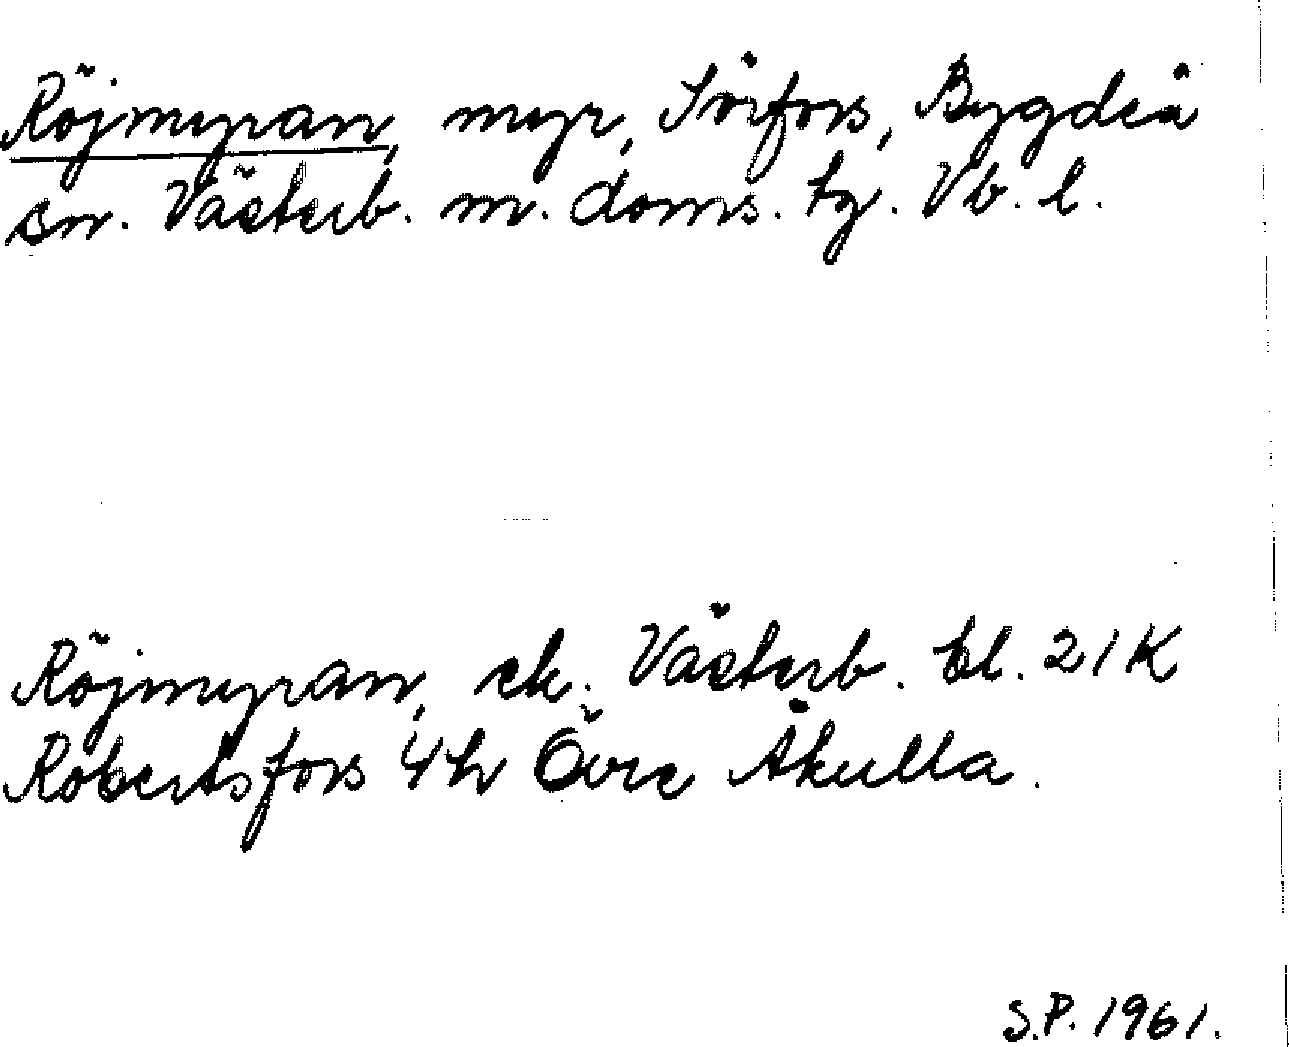 Röjmyran, myr, Sörfors, Bygdeå
sn. Västerb. m. doms. tg. Vb. l.
Röjmyran, ek. Västerb. bl. 21K
Robertsfors 4h Övre Åkulla.
S.P. 1961.